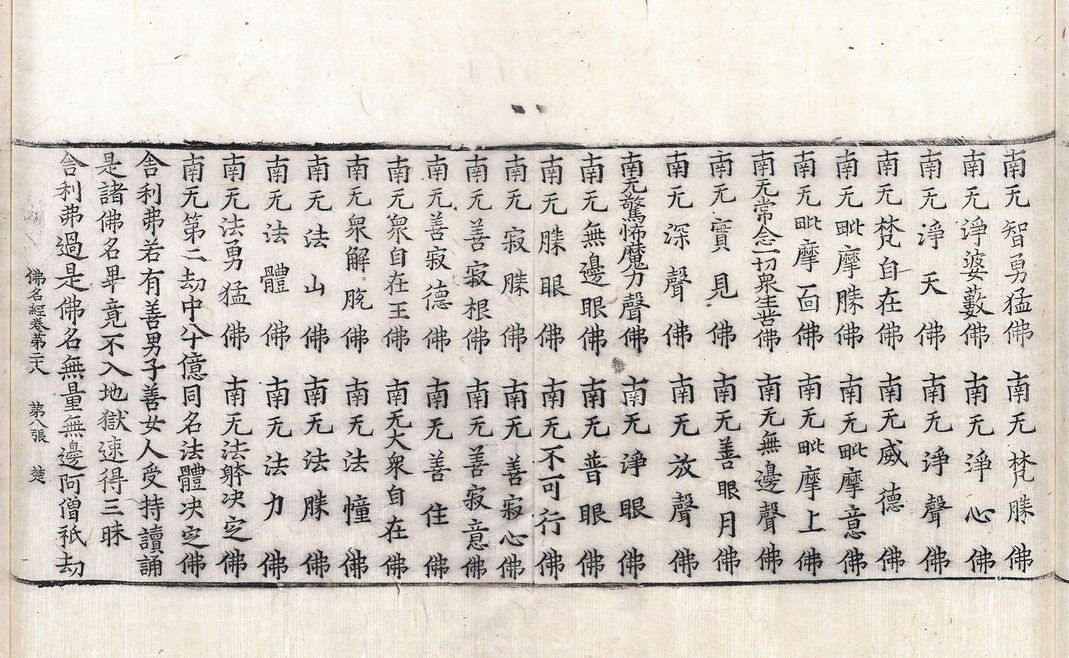 南无智勇猛佛　南无梵勝佛
南无淨婆藪佛　南无淨心佛
南无淨天佛　南无淨聲佛
南无梵自在佛　南无威德佛
南无毗摩勝佛　南无毗摩意佛
南无毗摩面佛　南无毗摩上佛
南无常念一切衆生佛　南无無邊聲佛
南无寶見佛　南无善眼月佛
南无深聲佛　南无放聲佛
南无驚怖魔力聲佛　南无淨眼佛
南无無邊眼佛　南无普眼佛
南无勝眼佛　南无不可行佛
南无寂勝佛　南无善寂心佛
南无善寂根佛　南无善寂意佛
南无善寂德佛　南无善住佛
南无衆自在王佛　南无大衆自在佛
南无衆解脫佛　南无法幢佛
南无法山佛　南无法勝佛
南无法體佛　南无法力佛
南无法勇猛佛　南无法體决定佛
南无第二劫中八十億同名法體决定佛
舍利弗若有善男子善女人受持讀誦
是諸佛名畢竟不入地獄速得三昧
舍利弗過是佛名無量無邊阿僧祇劫
佛名經卷第二十八　第八張　楚